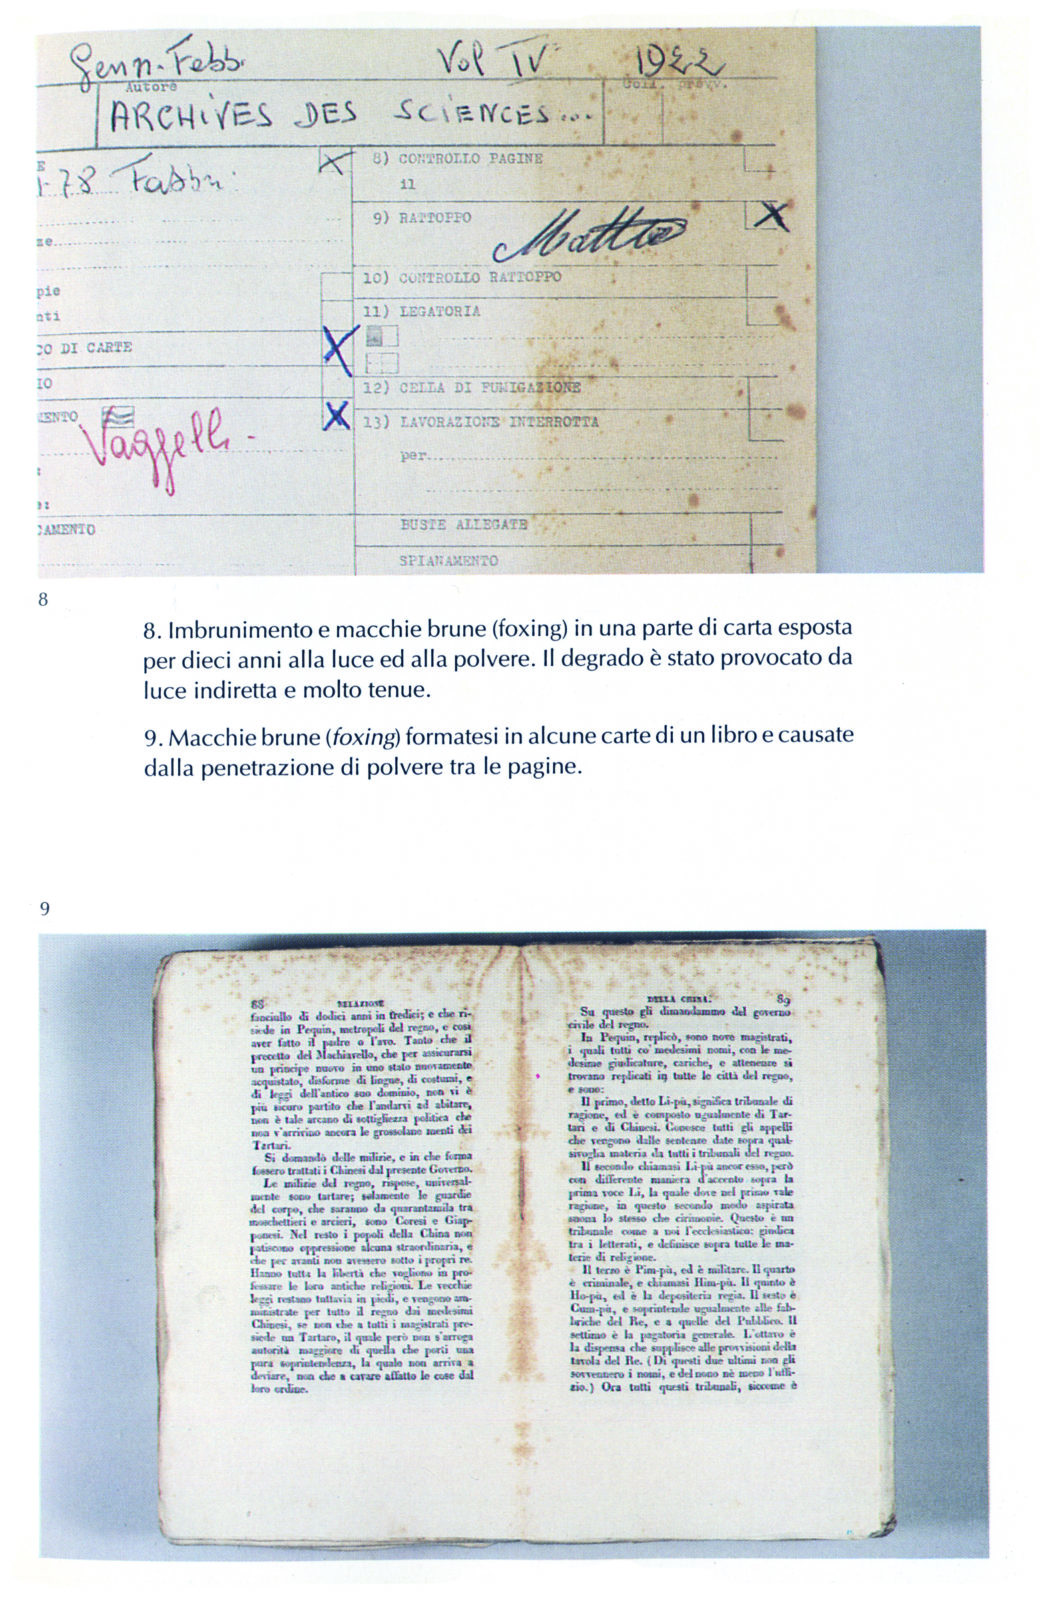 Genn-Febb. Vol IV 1922
Autore Coll. provv.
ARCHIVES DES SCIENCES...
E
1-78 Fabbri
8) CONTROLLO PAGINE
il
9) RATTOPPO
ze
10) CONTROLLO RATTOPPO
pie
11) LEGATORIA
nti
CO DI CARTE
IO
12) CELLA DI FUMIGAZIONE
MENTO
13) LAVORAZIONE INTERROTTA
Vaggelli
per
CAMENTO
BUSTE ALLEGATE
SPIANAMENTO
8
8. Imbrunimento e macchie brune (foxing) in una parte di carta esposta
per dieci anni alla luce ed alla polvere. Il degrado è stato provocato da
luce indiretta e molto tenue.
9. Macchie brune (foxing) formatesi in alcune carte di un libro e causate
dalla penetrazione di polvere tra le pagine.
9
88 RELAZIONE
fanciullo di dodici anni in tredici; e che ri-
siede in Pequin, metropoli del regno, e così
aver fatto il padre o l'avo. Tanto che il
precetto del Machiavello, che per assicurarsi
un principe nuovo in uno stato nuovamente
acquistato, disforme di lingue, di costumi, e
di leggi dell'antico suo dominio, non vi è
più sicuro partito che l'andarvi ad abitare,
non è tale arcano di sottigliezza politica che
non v'arrivino ancora le grossolane menti dei
Tartari.
Si domandò delle milizie, e in che forma
fossero trattati i Chinesi dal presente Governo.
Le milizie del regno, rispose, universal-
mente sono tartare; solamente le guardie
del corpo, che saranno da quarantamila tra
moschettieri e arcieri, sono Coresi e Giap-
ponesi. Nel resto i popoli della China non
patiscono oppressione alcuna straordinaria, e
che per avanti non avessero sotto i propri re.
Hanno tutta la libertà che vogliono in pro-
fessare le loro antiche religioni. Le vecchie
leggi restano tuttavia in piedi, e vengono am-
ministrate per tutto il regno dai medesimi
Chinesi, se non che a tutti i magistrati pre-
siede un Tartaro, il quale però non s'arroga
autorità maggiore di quella che porti una
pura soprintendenza, la quale non arriva a
deviare, non che a cavare affatto le cose dal
loro ordine.
DELLA CHINA. 89
Su questo gli dimandammo del governo
civile del regno.
In Pequin, replicò, sono nove magistrati,
i quali tutti co' medesimi nomi, con le me-
desime giudicature, cariche, e attenenze si
trovano replicati in tutte le città del regno,
e sono:
Il primo, detto Li-pù, significa tribunale di
ragione, ed è composto ugualmente di Tar-
tari e di Chinesi. Conosce tutti gli appelli
che vengono dalle sentenze date sopra qual-
sivoglia materia da tutti i tribunali del regno.
Il secondo chiamasi Li-pù ancor esso, però
con differente maniera d'accento sopra la
prima voce Li, la quale dove nel primo vale
ragione, in questo secondo modo aspirata
suona lo stesso che cirimonie. Questo è un
tribunale come a noi l'ecclesiastico: giudica
tra i letterati, e definisce sopra tutte le ma-
terie di religione.
Il terzo è Pim-pù, ed è militare. Il quarto
è criminale, e chiamasi Him-pù. Il quinto è
Ho-pù, ed è la depositeria regia. Il sesto è
Cum-pù, e soprintende ugualmente alle fab-
briche del Re, e a quelle del Pubblico. Il
settimo è la pagatoria generale. L'ottavo è
la dispensa che supplisce alle provvisioni della
tavola del Re. (Di questi due ultimi non gli
sovvennero i nomi, e del nono nè meno l'uffi-
zio.) Ora tutti questi tribunali, siccome è